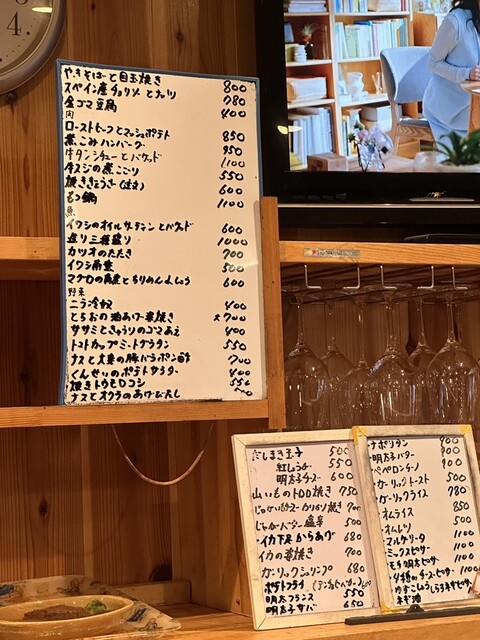 4
やきそばと目玉焼き 800
スペイン産チョリソとナッツ 780
金ゴマ豆腐 400
肉
ローストビーフとマッシュポテト 850
煮こみハンバーグ 950
牛タンシチューとバゲット 1100
牛スジの煮こごり 550
焼きぎょうざ 600
もつ鍋 1100
魚
イワシのオイルサーディンとバゲット 600
造り三種盛り 1000
カツオのたたき 700
イワシ南蛮 500
マグロの角煮とちりめんよしょう 600
野菜
ニラ冷奴 400
とちおの油あげ一番焼き 大700
ササミときゅうりのゴマあえ 400
トマトカップミートグラタン 550
ナスと大葉の豚バラポン酢 700
くんせいのポテトサラダ 400
焼きトウモロコシ 550
ナスとオクラのあげびたし
だしまき玉子 500
紅しょうが 550
明太子チーズ 600
山いものトロロ焼き 750
じゃがバター塩辛 500
イカ下足からあげ 680
イカの一番焼き 700
ガーリックシュリンプ 680
ポテトフライ
明太フランス 550
明太子サバ 650
ナポリタン 900
明太子バター 900
ペペロンチーノ 900
ガーリックトースト 500
ガーリックライス 780
オムライス 850
オムレツ 500
マルゲリータ 1100
ミックスピザ 1100
モチ明太ピザ 1100
4種のチーズピザ 1100
ゆずこしょうしらすネギピザ